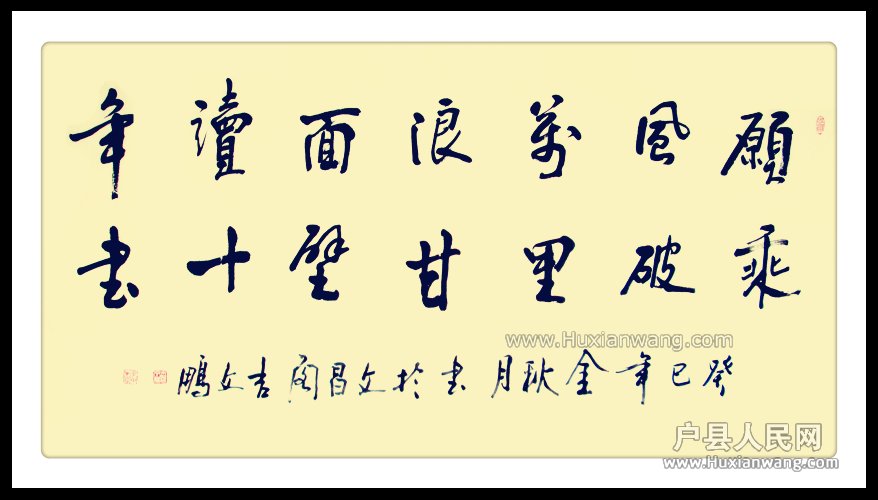 願乘
風破
萬里
浪甘
面壁
讀十
年書
癸巳年金秋月書於文昌阁吉文鵬
www.Huxianwang.com
户县人民网
www.Huxianwang.com